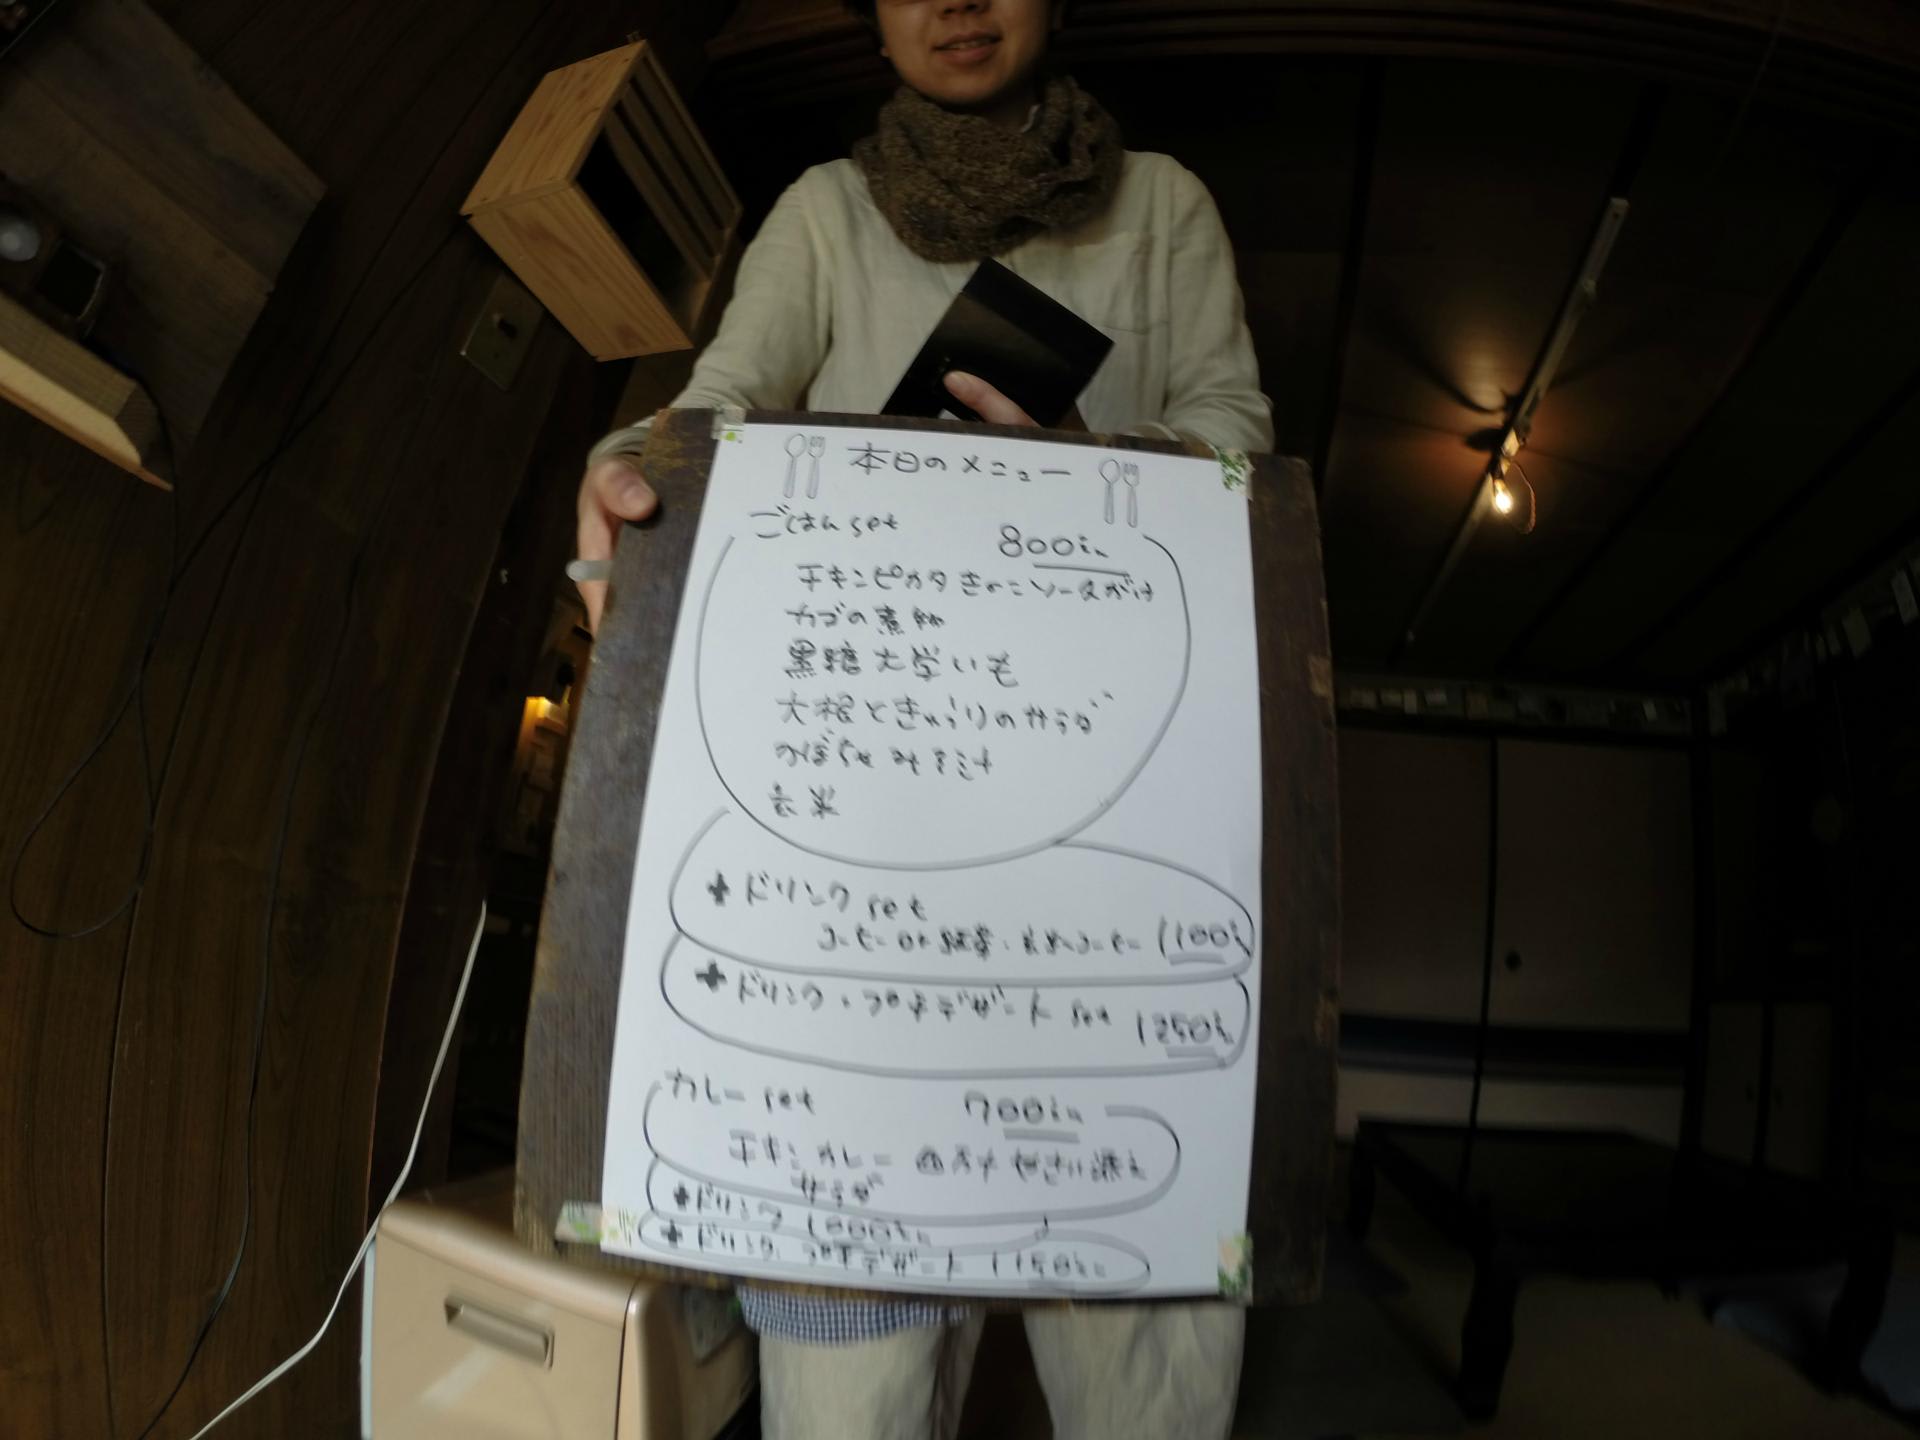 本日のメニュー
ごはんset
800in
チキンピカタ きのこソースがけ
カブの煮物
黒糖大学いも
大根ときゅうりのサラダ
かぼちゃみそ汁
玄米
+ドリンク set
コーヒー or 紅茶・コーヒー 1100
+ドリンク・プチデザート set 1250
カレー set
700in
チキンカレー やさい添え
サラダ
+ドリンク 1000
+ドリンク・プチデザート 1150